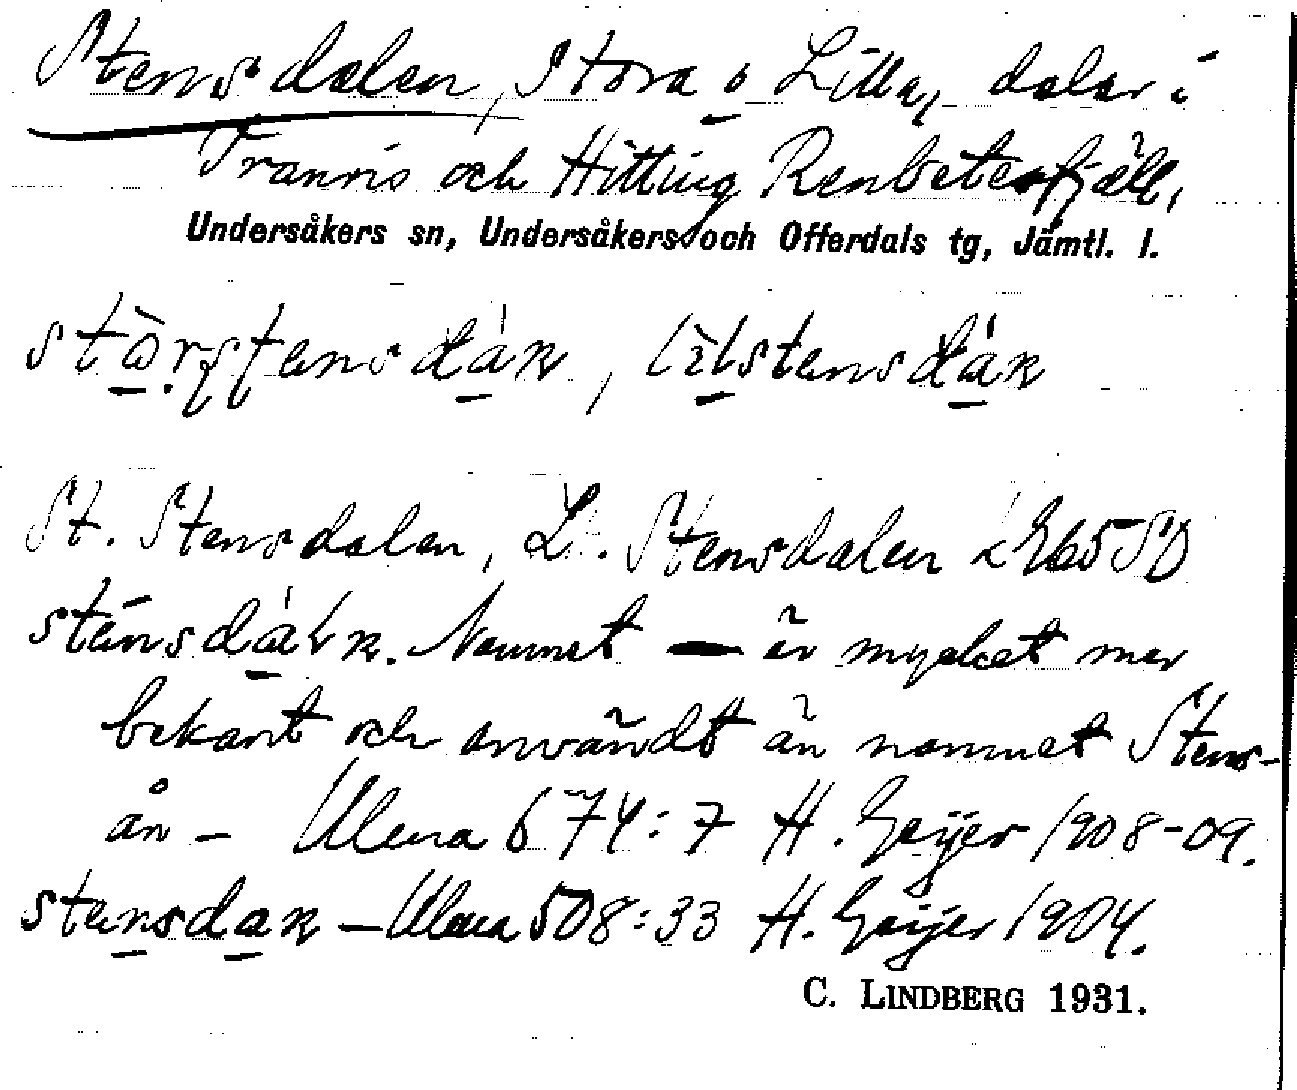 Stensdalen, Stora o Lilla, dalar i
Tranris och Hitting Renbetesfjäll,
Undersåkers sn, Undersåkers och Offerdals tg, Jämtl. l.
St. Stensdalen, L. Stensdalen Z 65 SD
Namnet — är mycket mer
bekant och användt än namnet Stens-
ån – Ulma 674:7 H. Geijer 1908-09.
stensdan – Ulma 508:33 H. Geijer 1904.
C. LINDBERG 1931.